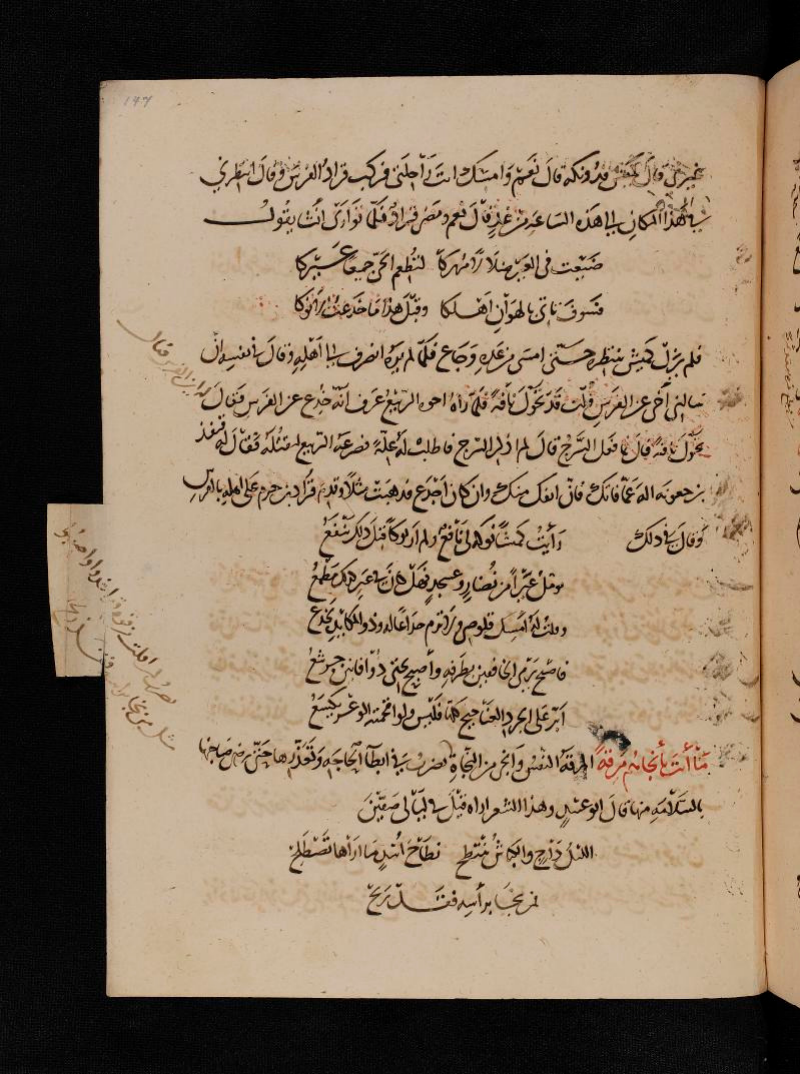 قال نعم وامسك انت راحلتي فركب قراد الفرس وقال انتظرني
في هذا المكان الى هذه الساعة من غد قال نعم ومضى قراد فلما توارى انشا يقول
ضيعت في العير ضلالا مهركا لتطعم الحي جميعا عيركا
فسوف تاتي بالهوان اهلكا وقبل هذا ما خدعت الانوكا
فلم يزل كميش ينتظره حتى امسى من غده وجاع فلما لم ير اثره انصرف الى اهله وقال في نفسه ان
سالني اخي عن الفرس قلت قد تحول ناقة فلما رآه اخوه الربيع عرف انه خدع عن الفرس فقال
تحول ناقة قال فما فعل السرج قال لم اذكر السرج فاطلب له علة فصرعه الربيع ليقتله فقال له قنفذ
بن جعونة اله عما فاتك فان انفك منك وان كان اجدع فذهبت مثلا وقدم قراد بن جرم على اهله بالفرس
وقال في ذلك رأيت كميشا نوكه لي نافع ولم ار نوكا قبل ذلك ينفع
يؤمل عيرا من نضار وعسجد فهل كان لي في عير كذلك مطمع
وقلت له امسك قلوصي ولا ترم خداعا له وذو المكايد يخدع
فاصبح يرمي الخافقين بطرفه واصبح تحتي ذو افانين جرشع
ابر على الجرد العناجيج كلها فليس ولو اقحمته الوعر يكسع
ما أنت بأنجاهم مرقة المرقة النفس وانجى من النجاة يضرب في ابطاء الحاجة وتعذرها حتى يرضى صاحبها
بالسلامة منها قال ابو عبيد وهذا الشعر اراه قيل في ليالي صفين
الليل داج والكباش تنتطح نطاح اسد ما اراها تصطلح
فمن نجا برأسه فقد ربح